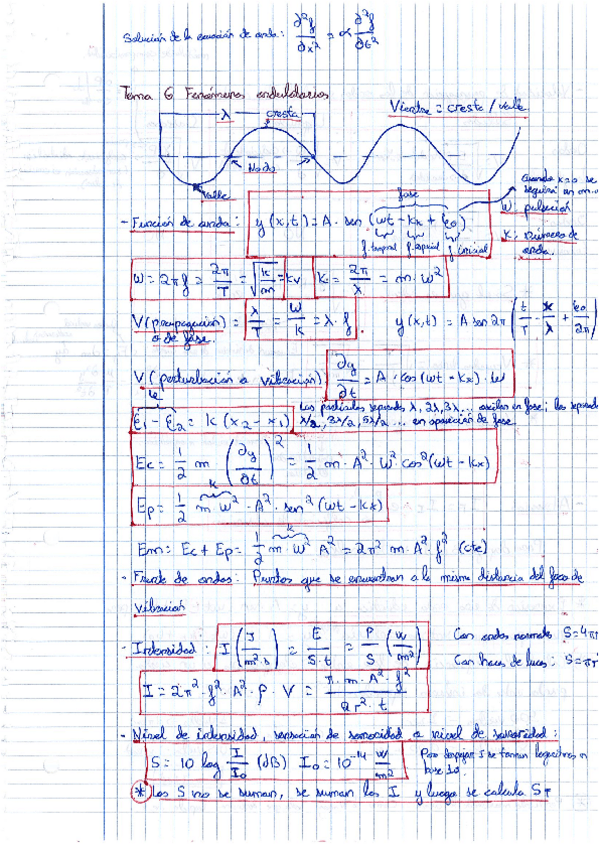 Solución de la ecuación de onda: ∂²y/∂x² = α ∂²y/∂t²
Tema 6 Fenómenos ondulatorios
Vientre = cresta / valle
λ cresta
Nodo
valle
cuando x=0 se
fase
- Función de onda: y(x,t) = A · sen (wt - kx + φ0)
f. temporal f. espacial f. inicial
w: pulsación
k: número de
onda.
w = 2πf = 2π/T = √(k/m) = kv k = 2π/λ = m·w²
V(propagación) = λ/T = w/k = λ·f. y(x,t) = A sen 2π (t/T - x/λ + φ0/2π)
o de fase.
V(perturbación o vibración) ∂y/∂t = A · cos(wt - kx) · w
φ1 - φ2 = k (x2 - x1) Las partículas separadas λ, 2λ, 3λ... oscilan en fase; las separadas
λ/2, 3λ/2, 5λ/2 ... en oposición de fase.
Ec = 1/2 m (∂y/∂t)² = 1/2 m·A²·w² cos²(wt - kx)
k
Ep = 1/2 m w² · A² · sen² (wt - kx)
k
Em: Ec + Ep = 1/2 m·w² A² = 2π² m·A²·f² (cte)
- Frente de ondas: Puntos que se encuentran a la misma distancia del foco de
vibración
- Intensidad: I (J/m²·s) = E/S·t = P/S (w/m²) Con ondas normales S=4πr
Con haces de luces: S=πr
I = 2π²·f²·A²·ρ·V = π·m·A²·f² / 2r²·t
- Nivel de intensidad, sensación de sonoridad o nivel de sonoridad:
S = 10 log I/I0 (dB) I0 = 10⁻¹⁴ w/m² Para despejar I se toman logaritmos en
base 10.
* Las S no se suman, se suman las I y luego se calcula ST